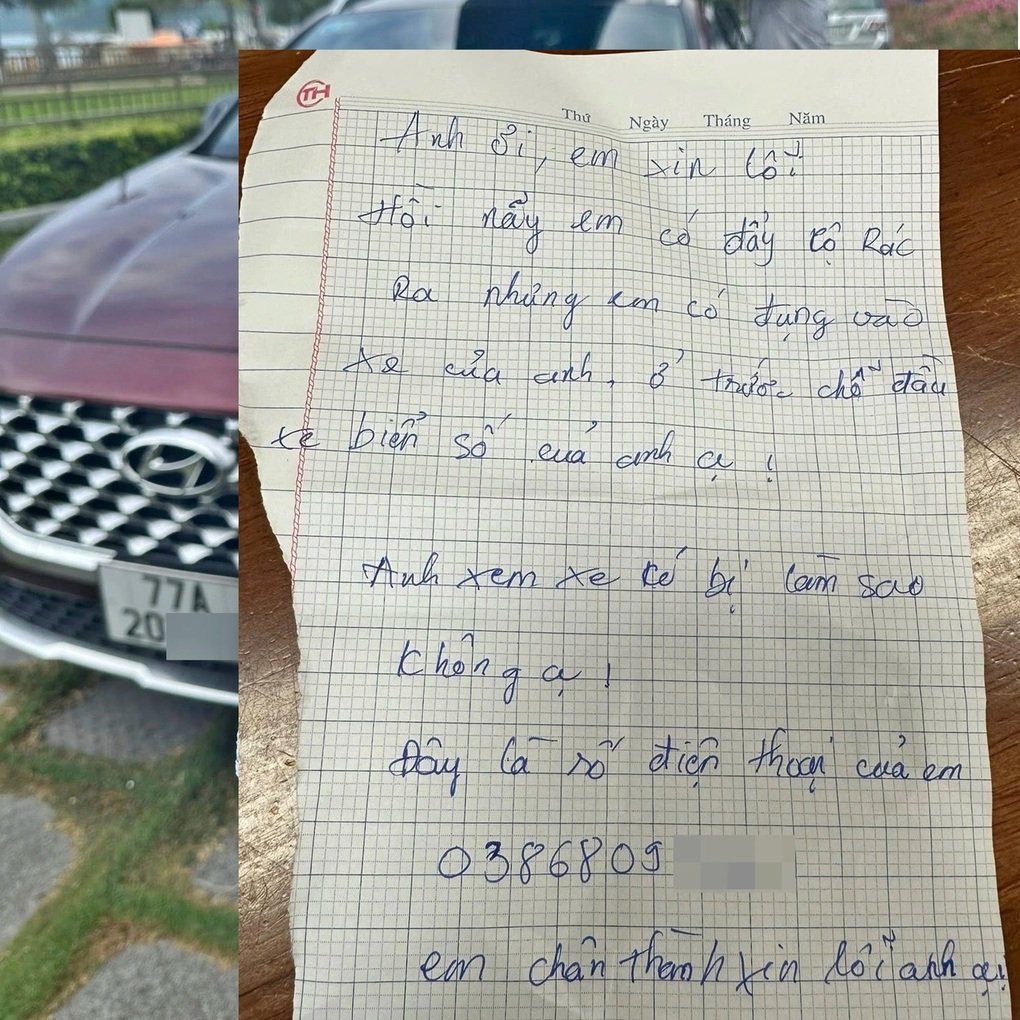 TH
Thứ Ngày Tháng Năm
Anh ơi, em xin lỗi
Hồi nãy em có đẩy cộ Rác
Ra nhưng em có đụng vào
xe của anh, ở trước chỗ đầu
xe biển số của anh ạ !
Anh xem xe có bị làm sao
không ạ !
Đây là số điện thoại của em
0386809
em chân thành xin lỗi anh ạ!
77A
20